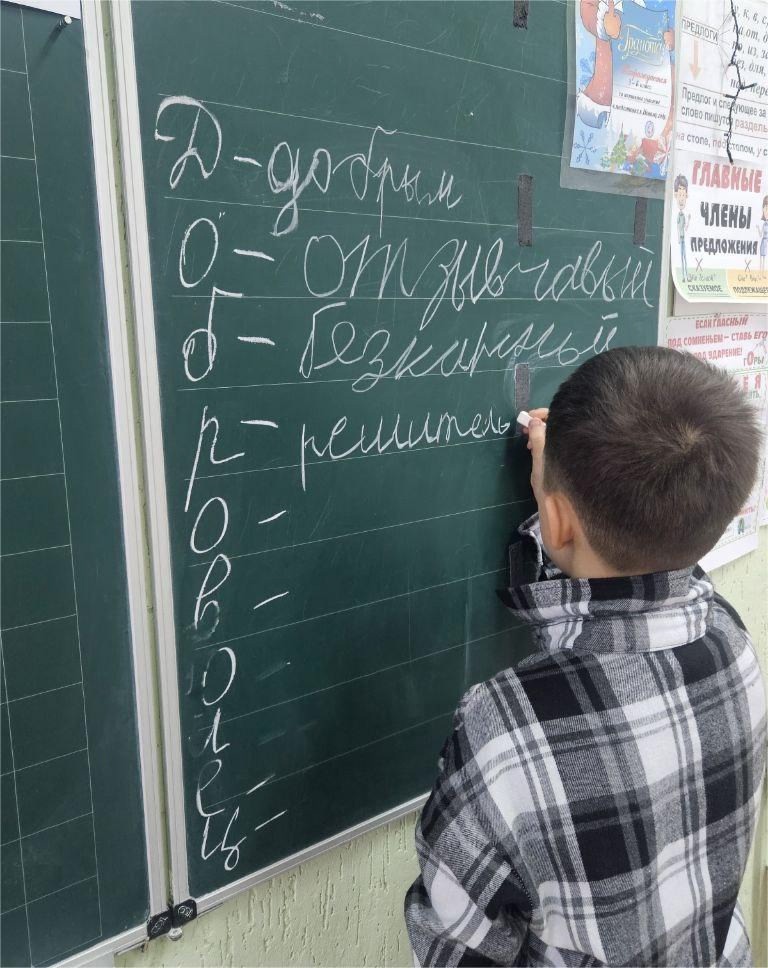 Д - добрым
О - отзывчавый
б -
р - решитель
о -
в -
о -
л -
е -
ц -
Грамота
Награждается
ПРЕДЛОГИ
Предлог и следующее за
слово пишутся раздель
на столе, под столом, у с
ГЛАВНЫЕ
ЧЛЕНЫ
ПРЕДЛОЖЕНИЯ
СКАЗУЕМОЕ ПОДЛЕЖАЩЕ
ЕСЛИ ГЛАСНЫЙ
ПОД СОМНЕНЬЕМ – СТАВЬ ЕГО
ПОД УДАРЕНИЕ!